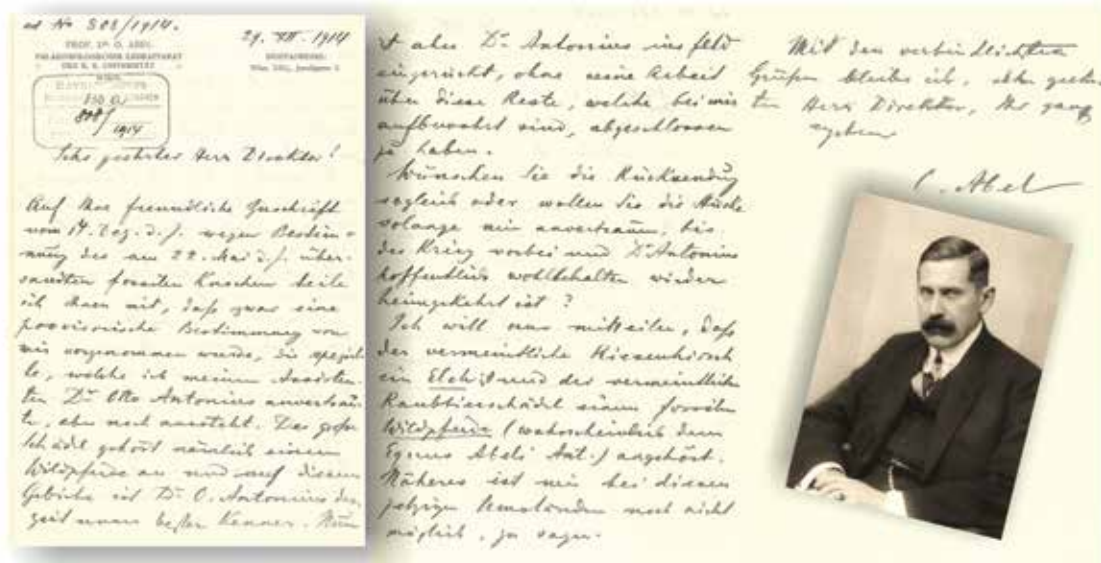 ad No 808/1914.
29. XII. 1914
PROF. DR. O. ABEL
PALAEOBIOLOGISCHER LEHRAPPARAT
DER K. K. UNIVERSITÄT
WIEN.
BRIEFADRESSE:
Wien, XIII., Jenullgasse 2
808/
1914
Sehr geehrter Herr Direktor!
Auf Ihre freundliche Zuschrift
vom 14. Dez. d. J. wegen Bestim-
mung der am 22. Mai d. J. über-
sandten fossilen Knochen teile
ich Ihnen mit, daß zwar eine
provisorische Bestimmung von
mir vorgenommen wurde, die speziel-
le, welche ich meinem Assisten-
ten Dr. Otto Antonius anvertrau-
te, aber noch aussteht. Der große
Schädel gehört nämlich einem
Wildpferde an und auf diesem
Gebiete ist Dr. O. Antonius der-
zeit unser bester Kenner. Nun
ist aber Dr. Antonius ins Feld
eingerückt, ohne seine Arbeit
über diese Reste, welche bei mir
aufbewahrt sind, abgeschlossen
zu haben.
Wünschen Sie die Rücksendung
sogleich oder wollen Sie die Stücke
solange mir anvertrauen, bis
der Krieg vorbei und Dr. Antonius
hoffentlich wohlbehalten wieder
heimgekehrt ist?
Ich will nur mitteilen, daß
der vermeintliche Riesenhirsch
ein Elch ist und der vermeintliche
Raubtierschädel einem fossilen
Wildpferde (wahrscheinlich dem
Equus Abeli Ant.) angehört.
Näheres ist mir bei diesen
jetzigen Umständen noch nicht
möglich, zu sagen.
Mit den verbindlichsten
Grüßen bleibe ich, sehr geehr-
ter Herr Direktor, Ihr ganz
ergebener
O. Abel